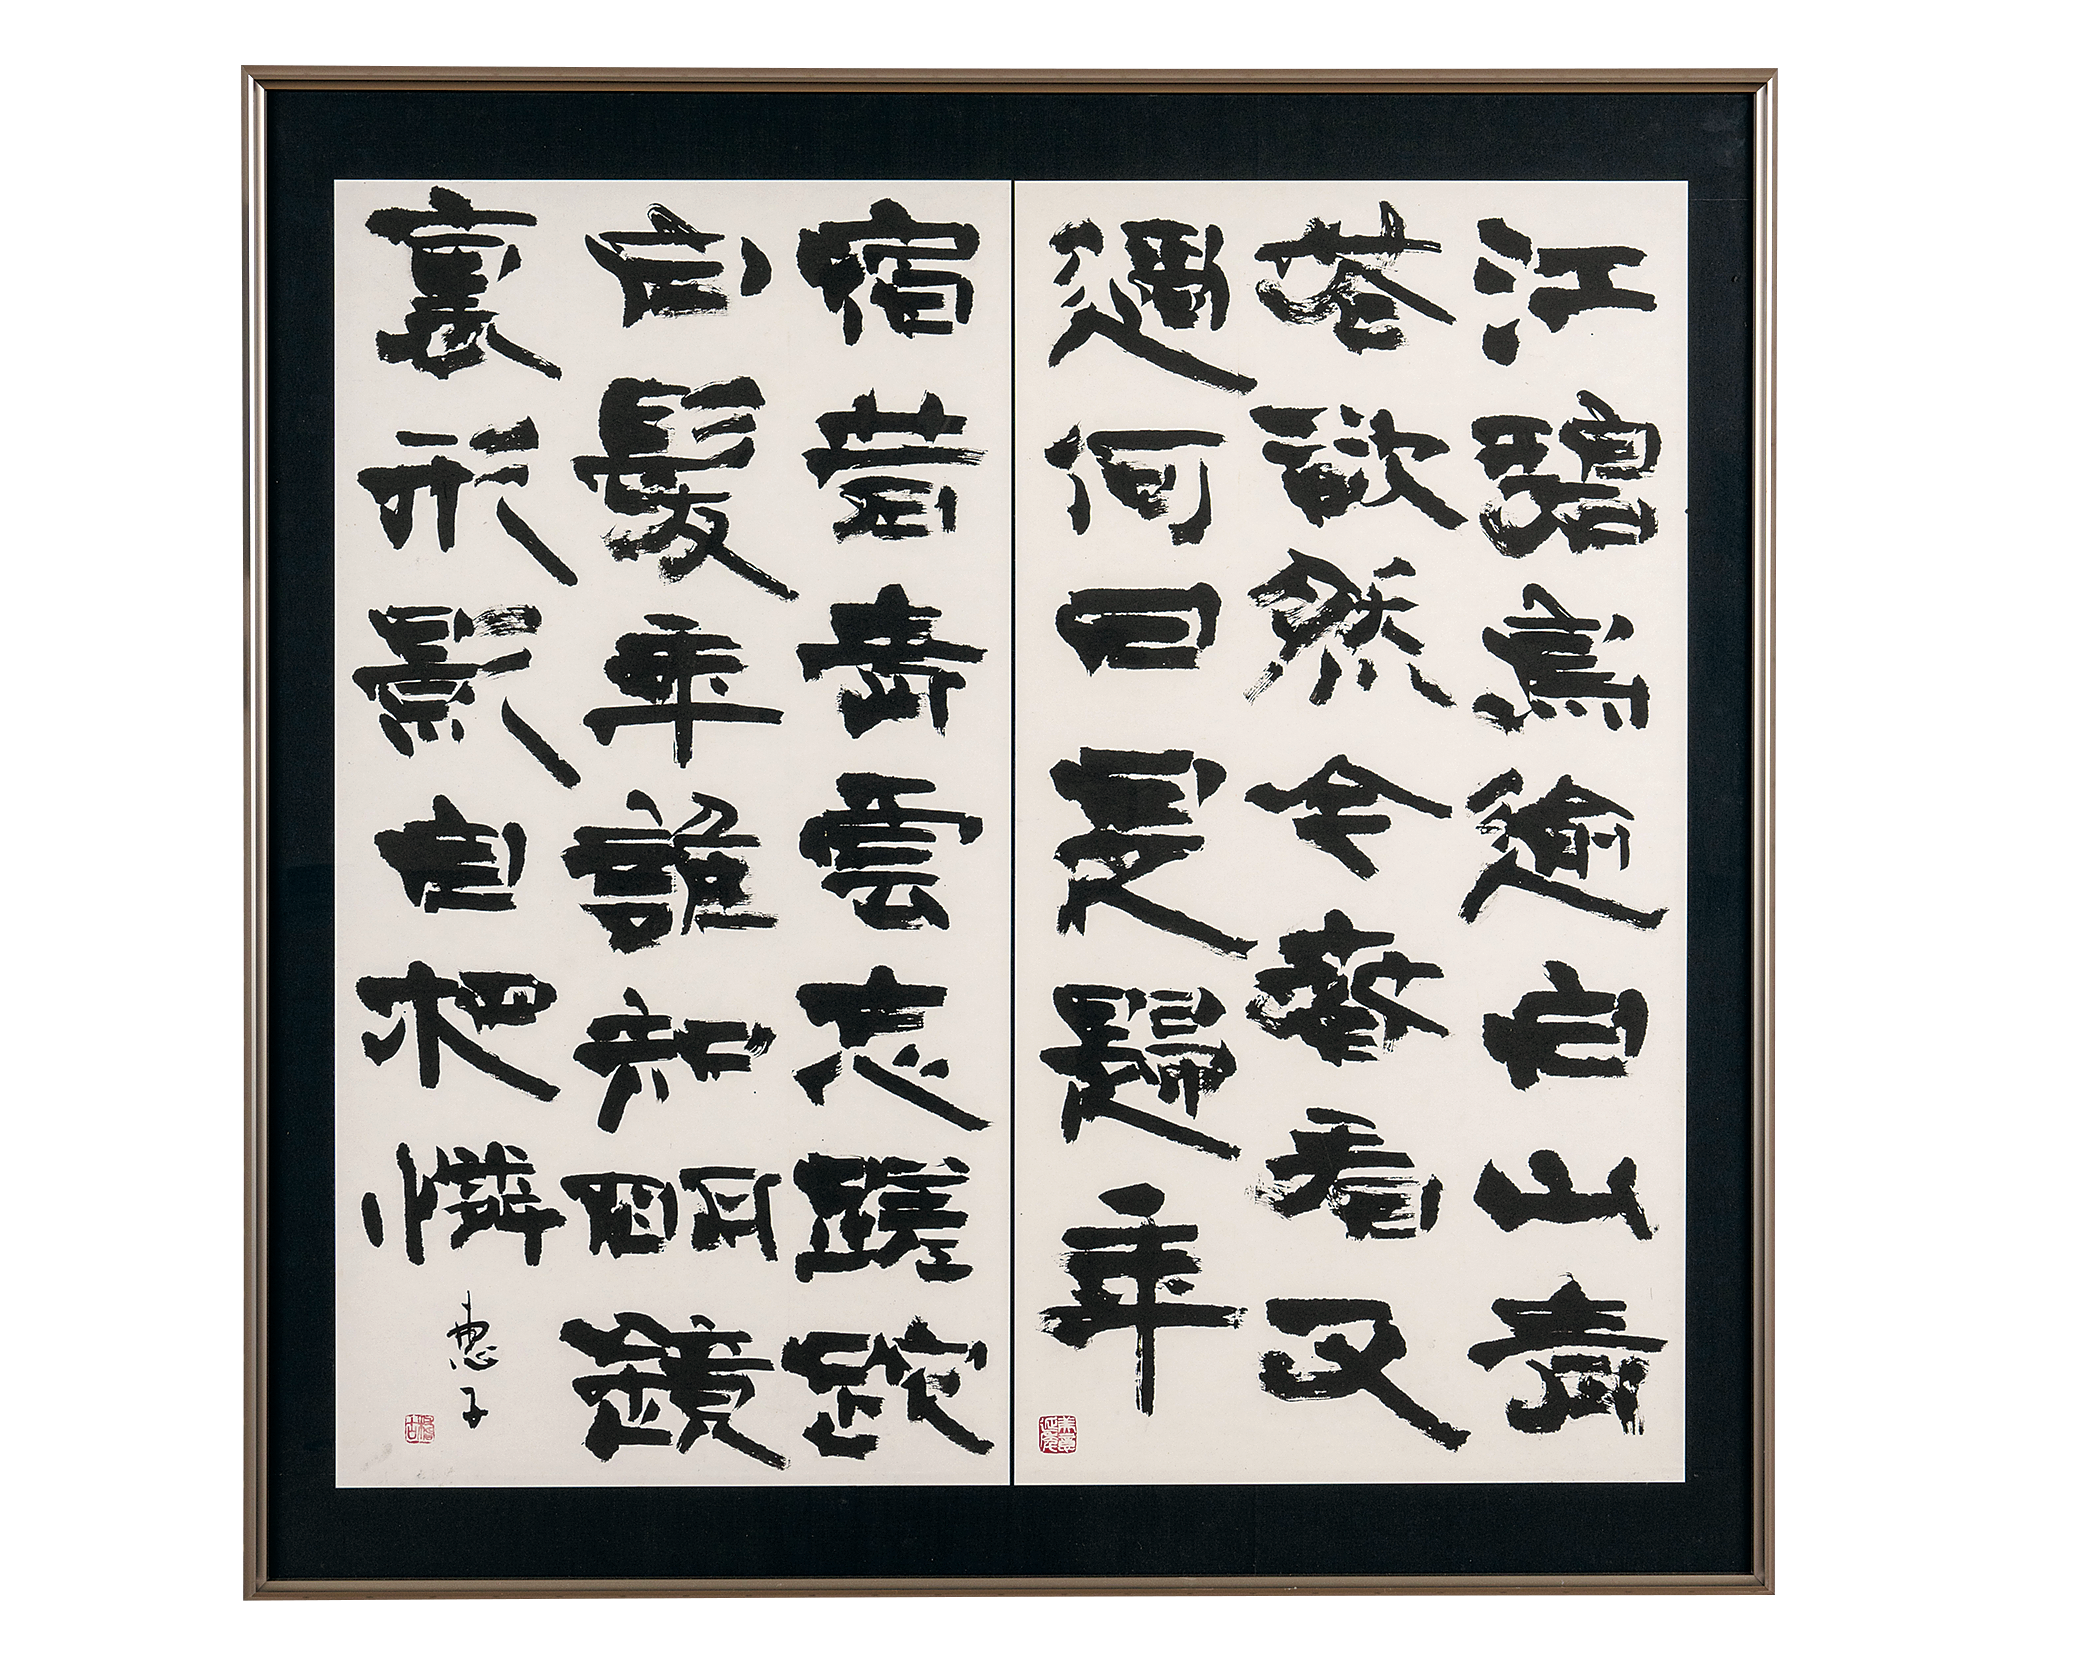 江碧鳥逾白山青
花欲然今春看又
過何日是歸年
宿昔青雲志蹉跎
白髮年誰知明鏡
裏形影自相憐
惠子